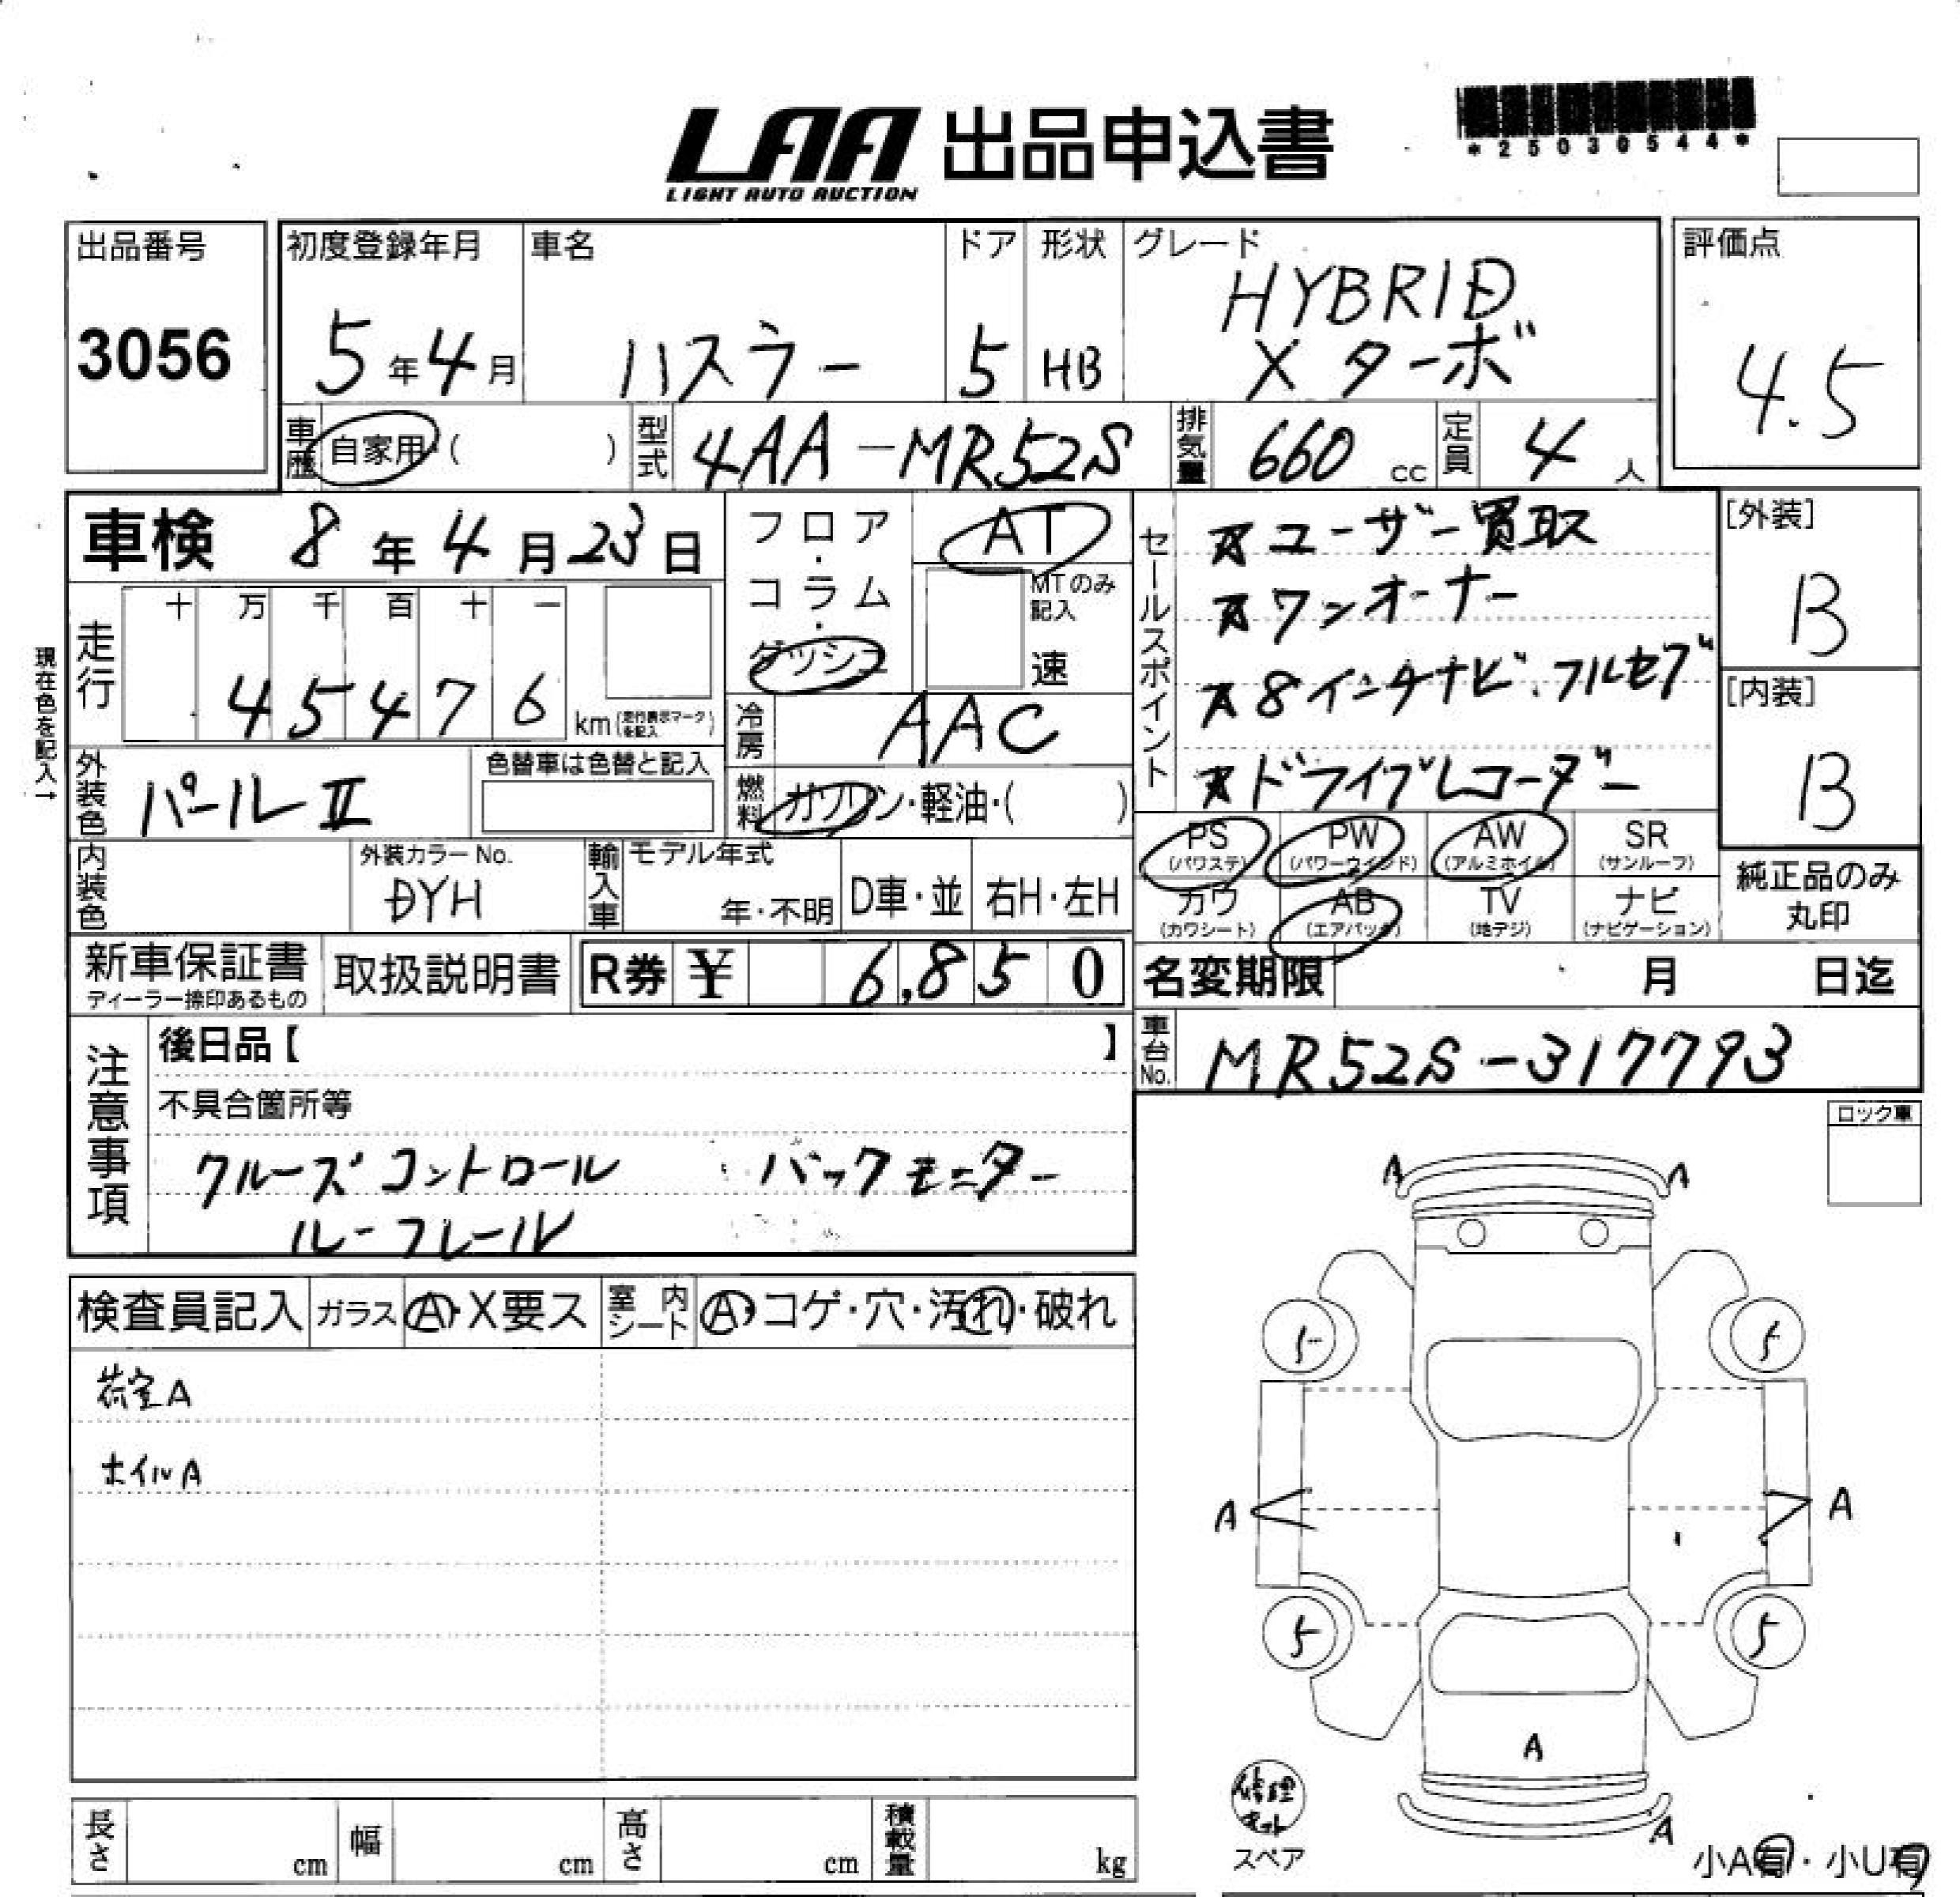 LAA 出品申込書
LIGHT AUTO AUCTION
*25030544*
出品番号
3056
初度登録年月
5年4月
車名
ハスラー
ドア
5
形状
HB
グレード
HYBRID
Xターボ
評価点
4.5
車歴 自家用・( )
型式 4AA-MR52S
排気量 660 cc
定員 4 人
車検 8年4月23日
フロア・コラム・ダッシュ
AT
MTのみ記入
速
セールスポイント
ユーザー買取
ワンオーナー
8インチナビ、フルセグ
ドライブレコーダー
[外装]
B
[内装]
B
現在色を記入→
走行
十 万 千 百 十 一
4 5 4 7 6 km(走行表示マークを記入)
冷房 AAC
外装色 パールⅡ
色替車は色替と記入
燃料 ガソリン・軽油・( )
PS (パワステ)
PW (パワーウインド)
AW (アルミホイル)
SR (サンルーフ)
カワ (カワシート)
AB (エアバック)
TV (地デジ)
ナビ (ナビゲーション)
純正品のみ
丸印
内装色
外装カラーNo.
DYH
輸入車
モデル年式
年・不明
D車・並
右H・左H
新車保証書
ディーラー捺印あるもの
取扱説明書
R券 ¥ 6,850
名変期限 月 日迄
車台No. MR52S-317793
注意事項
後日品【 】
不具合箇所等
クルーズコントロール バックモニター
ルーフレール
ロック車
検査員記入 ガラス A・X要ス 室内シート A・コゲ・穴・汚れ・破れ
荷室A
ホイルA
A A
5 5
A A
5 5
A
A
修理キット
スペア
小A有・小U有
長さ cm
幅 cm
高さ cm
積載量 kg